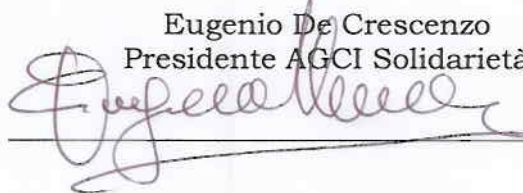 Eugenio De Crescenzo
Presidente AGCI Solidarietà
Eugenio